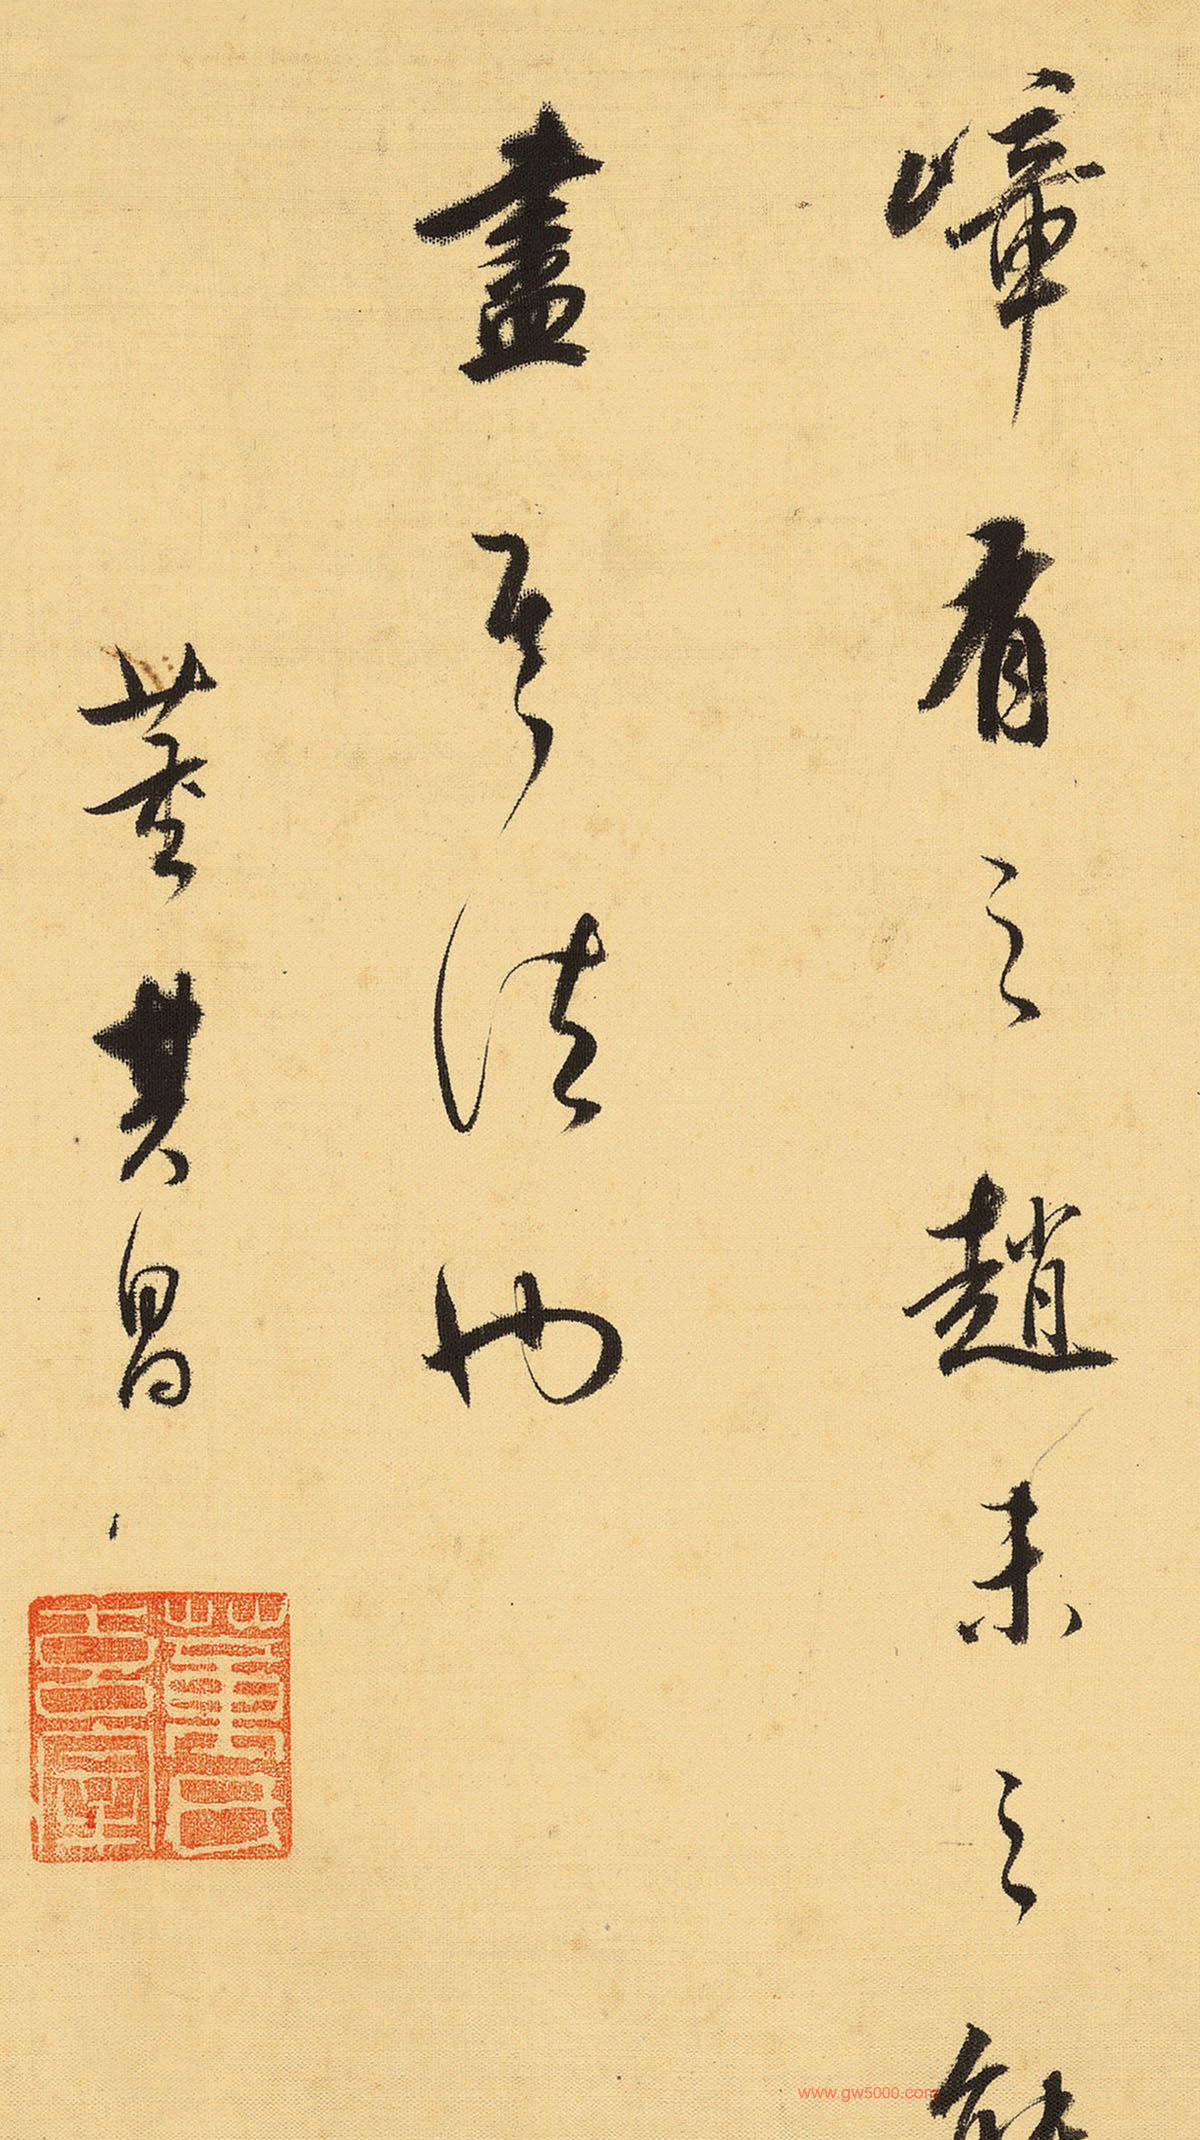 嶂有之趙未之能
盡其法也
董其昌
www.gw5000.com